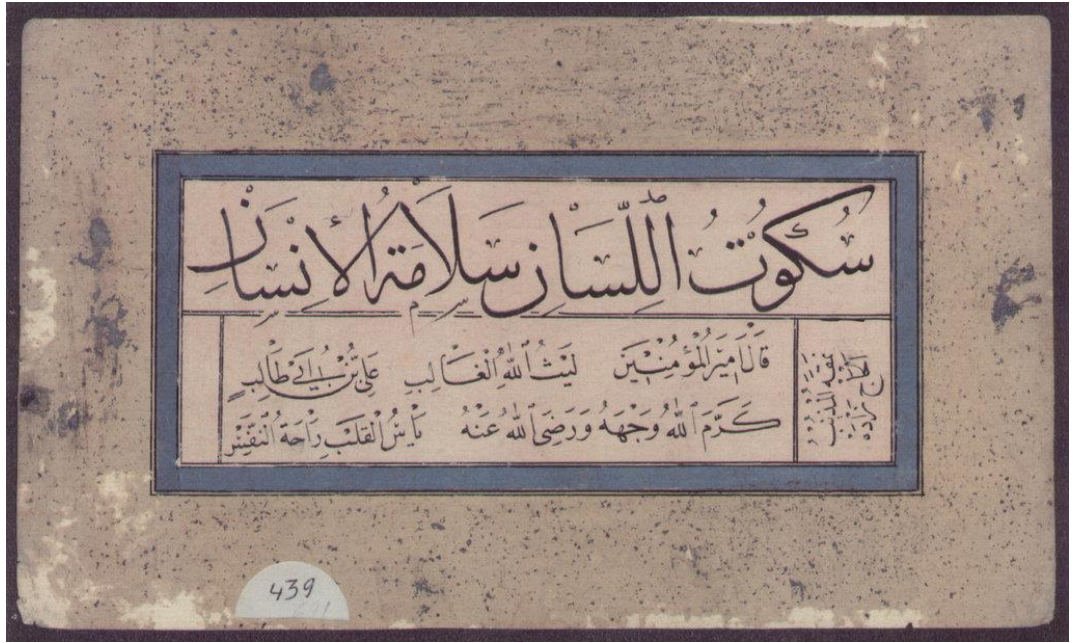 سُكُوتُ اللِّسَانِ سَلَامَةُ الْإِنْسَانِ
قَالَ أَمِيرُ الْمُؤْمِنِينَ لَيْثُ اللّٰهِ الْغَالِبِ عَلِيُّ بْنُ أَبِي طَالِبٍ
كَرَّمَ اللّٰهُ وَجْهَهُ وَرَضِيَ اللّٰهُ عَنْهُ يَأْسُ الْقَلْبِ رَاحَةُ النَّفْسِ
نمقه المذنب
439